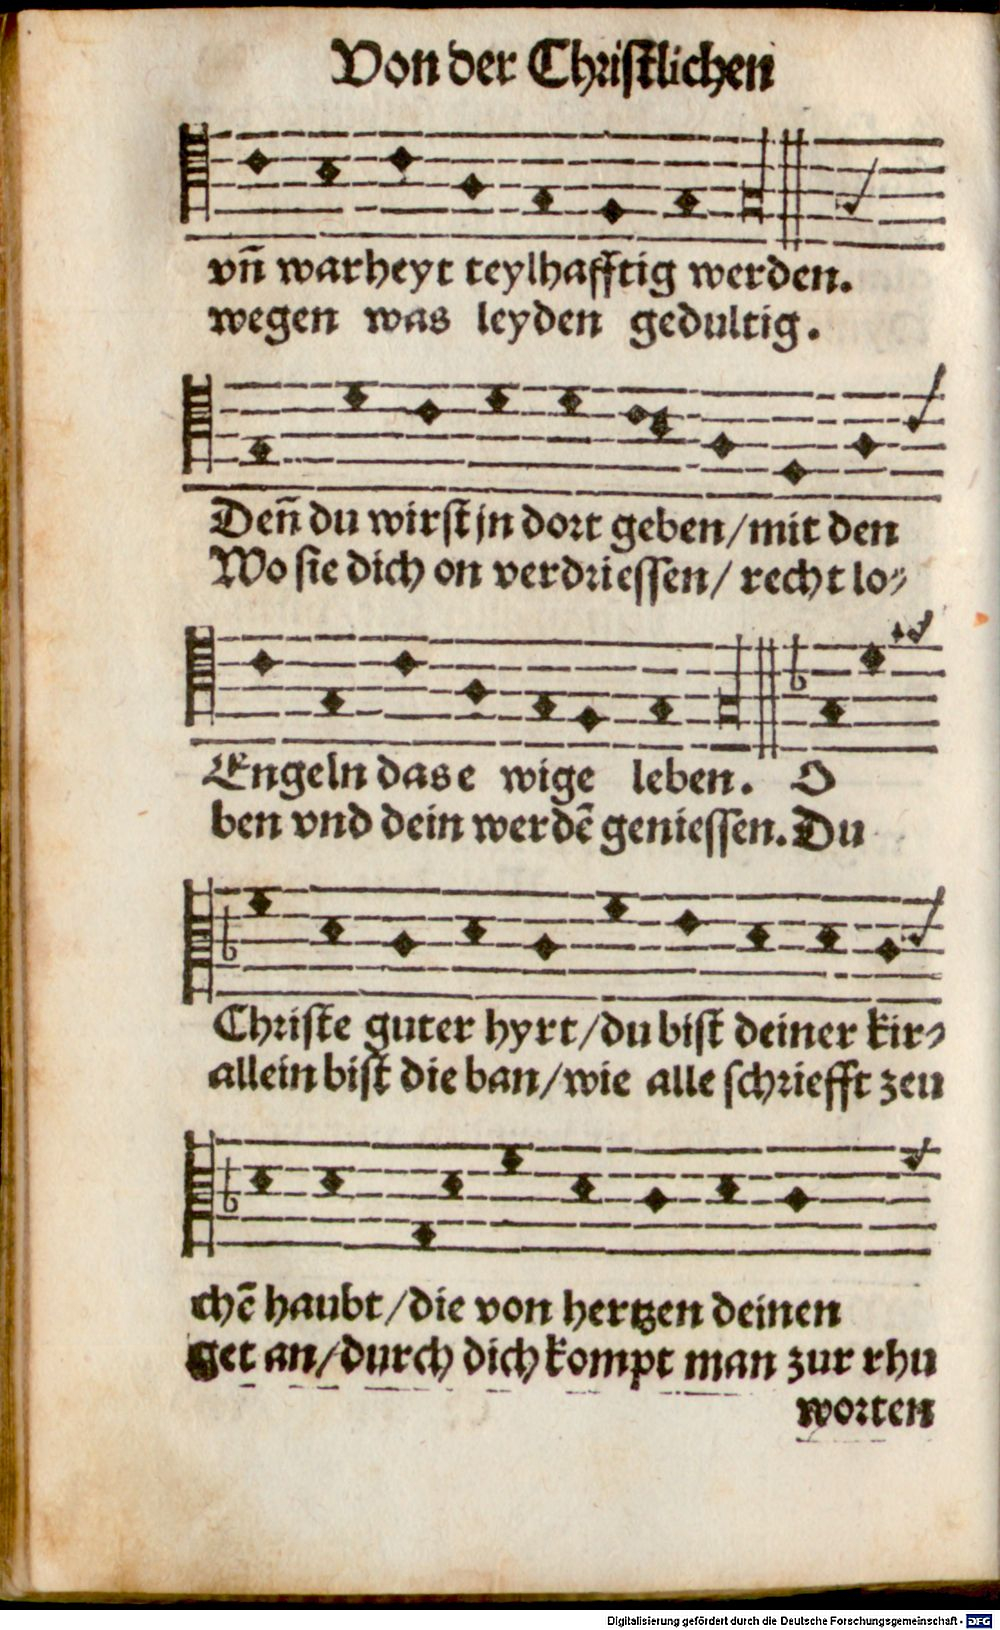 Von der Christlichen
vn̄ warheyt teylhafftig werden.
wegen was leyden gedultig.
Den̄ du wirst jn dort geben/mit den
Wo sie dich on verdriessen/ recht lo⸗
Engeln das e wige leben. O
ben vnd dein werdē geniessen. Du
Christe guter hyrt/du bist deiner kir⸗
allein bist die ban/wie alle schriefft zeu
chē haubt/die von hertzen deinen
get an/durch dich kompt man zur rhu
worten
Digitalisierung gefördert durch die Deutsche Forschungsgemeinschaft - DFG